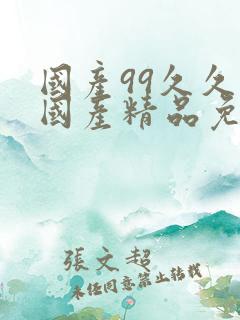 國產99久久
國產精品免
張文超
未任同意禁止转载